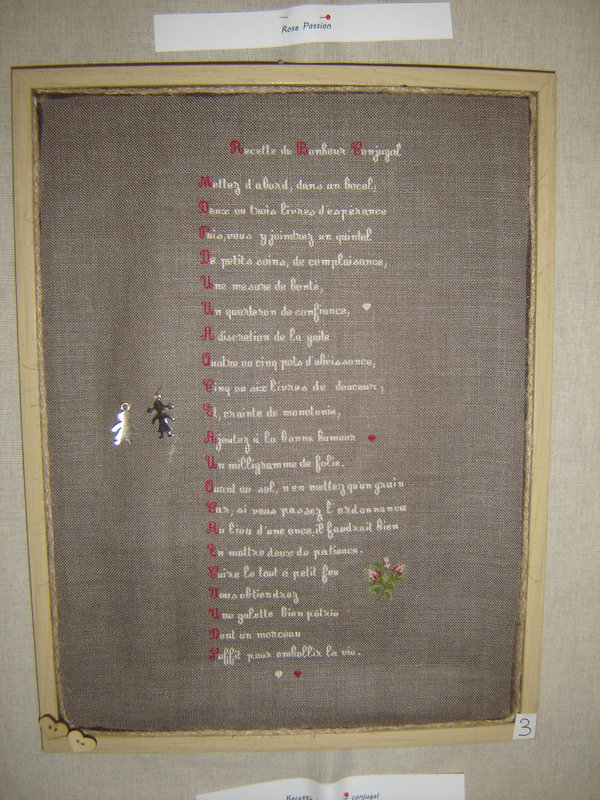 Rose Passion
Recette du Bonheur Conjugal
Mettez d'abord, dans un bocal,
Deux ou trois livres d'espérance
Puis, vous y joindrez un quintal
De petits soins, de complaisance,
Une mesure de bonté,
Un quarteron de confiance,
A discrétion de la gaité
Quatre ou cinq pots d'obéissance,
Cinq ou six livres de douceur;
Et, crainte de monotonie,
Ajoutez à la bonne humeur
Un milligramme de folie.
Quant au sel, n'en mettez qu'un grain
Car, si vous passez l'ordonnance
Au lieu d'une once, il faudrait bien
En mettre deux de patience.
Cuire le tout à petit feu
Vous obtiendrez
Une galette bien pétrie
Dont un morceau
Suffit pour embellir la vie.
3
Recette conjugal